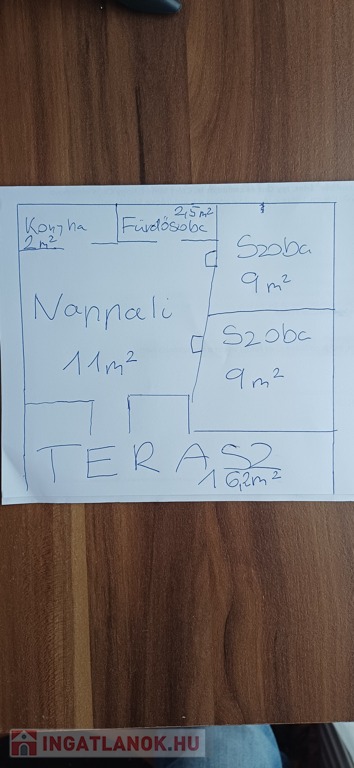 Konyha
2m²
2,5m²
Fürdőszoba
Szoba
9m²
Nappali
11m²
Szoba
9m²
TERASZ
16,2m²
INGATLANOK.HU